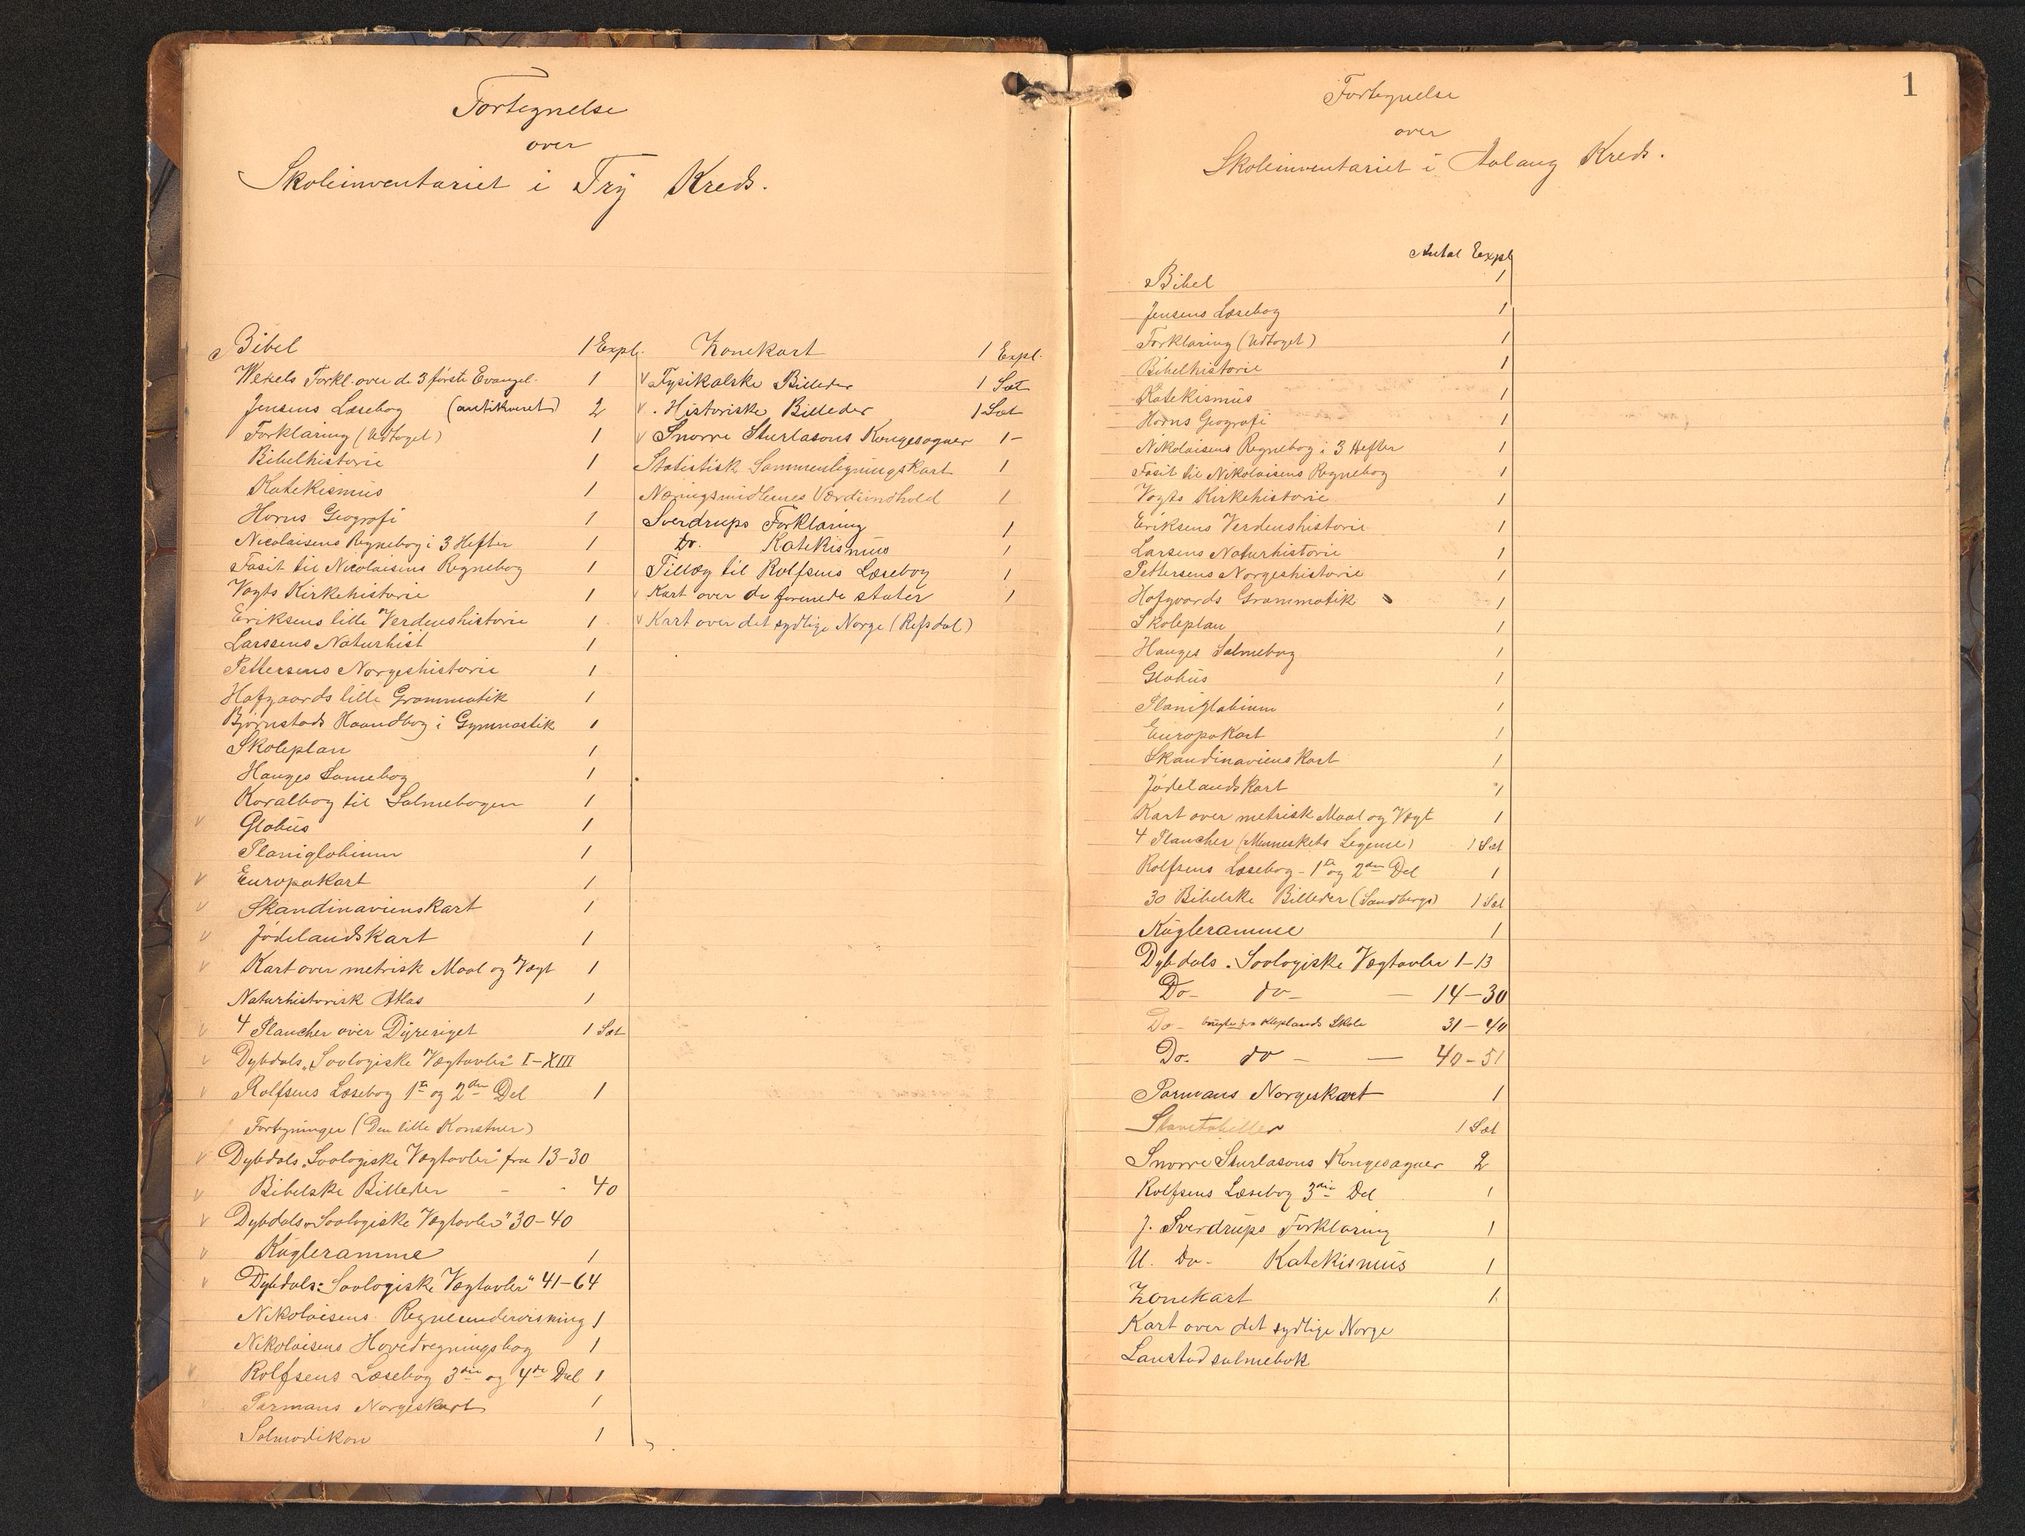 Fortegnelse
over
Skoleinventariet i Try Kreds.
Bibel 1 Expl.
Wexels Forkl. over de 3 første Evangel. 1
Jensens Læsebog (antikveret) 2
Forklaring (Udtoget) 1
Bibelhistorie 1
Katekismus 1
Horns Geografi 1
Nicolaisens Regnebog i 3 Hefter 1
Fasit til Nicolaisens Regnebog 1
Vogts Kirkehistorie 1
Eriksens lille Verdenshistorie 1
Larssens Naturhist 1
Pettersens Norgeshistorie 1
Hofgaards lille Grammatik 1
Bjørnstads Haandbog i Gymnastik 1
Skoleplan 1
Hauges Samebog 1
Koralbog til Salmebogen 1
v Globus 1
Planiglobium 1
v Europakart 1
v Skandinavienskart 1
v Jødelandskart 1
v Kart over metrisk Maal og Vægt 1
Naturhistorisk Atlas 1
v 4 Plancher over Dyreriget 1 Sæt
v Dybdals "Soologiske Vægtavler" I-XIII
v Rolfsens Læsebog 1ste og 2den Del 1
Fortegninger (Den lille Konstner)
v Dybdals "Soologiske Vægtavler" fra 13-30
v Bibelske Billeder - - 40
v Dybdals "Soologiske Vægtavler" 30-40
v Kugleramme 1
v Dybdals "Soologiske Vægtavler" 41-64
Nikolaisens Regneundervisning 1
Nikolaisens Hovedregningsbog 1
v Rolfsens Læsebog 3die og 4de Del 1
v Parmans Norgeskart 1
Salmodikon 1
Zonekart 1 Expl.
v Fysikalske Billeder 1 Sæt
v Historiske Billeder 1 Sæt
v Snorre Sturlasons Kongesagaer 1-
Statistisk Sammenligningskart 1
Næringsmidlernes Værdiindhold 1
Sverdrups Forklaring 1
Do. Katekismus 1
Tillæg til Rolfsens Læsebog 1
v Kart over de forenede stater 1
v Kart over det sydlige Norge (Refsdal)
1
Fortegnelse
over
Skoleinventariet i Aalaug Kreds.
Antal Expl
Bibel 1
Jensens Læsebog 1
Forklaring (Udtoget) 1
Bibelhistorie 1
Katekismus 1
Horns Geografi 1
Nikolaisens Regnebog i 3 Hefter 1
Fasit til Nikolaisens Regnebog 1
Vogts Kirkehistorie 1
Eriksens Verdenshistorie 1
Larsens Naturhistorie 1
Pettersens Norgeshistorie 1
Hofgaards Grammatik 1
Skoleplan 1
Hauges Salmebog 1
Globus 1
Planiglobium 1
Europakart 1
Skandinavienskart 1
Jødelandskart 1
Kart over metrisk Maal og Vægt 1
4 Plancher (Menneskets Legeme) 1 Sæt
Rolfsens Læsebog - 1ste og 2den Del 1
30 Bibelske Billeder (Sandbergs) 1 Sæt
Kugleramme 1
Dybdals "Soologiske Vægtavler 1-13
Do- do- — 14-30
Do- Skole 31-40
Do- do — — 40-51
Parmans Norgeskart 1
Stavetabeller 1 Sæt
Snorre Sturlasons Kongesagaer 2
Rolfsens Læsebog 3die Del 1
J. Sverdrups Forklaring 1
U. Do- Katekismus 1
Zonekart 1
Kart over det sydlige Norge
Lanstad salmebok